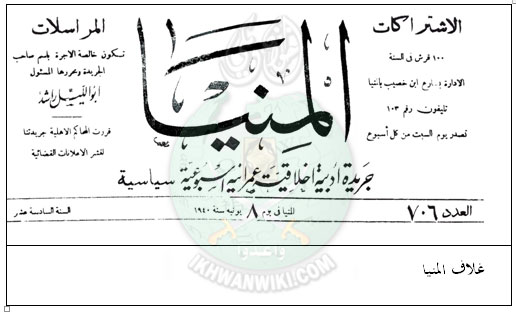 الاشتراكات
١٠٠ قرش فى السنة
الادارة بشارع ابن خصيب بالمنيا
تليفون رقم ١٠٣
تصدر يوم السبت من كل أسبوع
المنيا
جريدة أدبية اخلاقية عمرانية اسبوعية سياسية
المراسلات
تكون خالصة الاجرة باسم صاحب
الجريدة ومحررها المسئول
أبو الليل راشد
قررت المحاكم الاهلية جريدتنا
لنشر الاعلانات القضائية
العدد ٧٠٦
المنيا فى يوم ٨ يونيه سنة ١٩٤٠
السنة السادسة عشر
وأعدوا
IKHWANWIKI.COM
غلاف المنيا